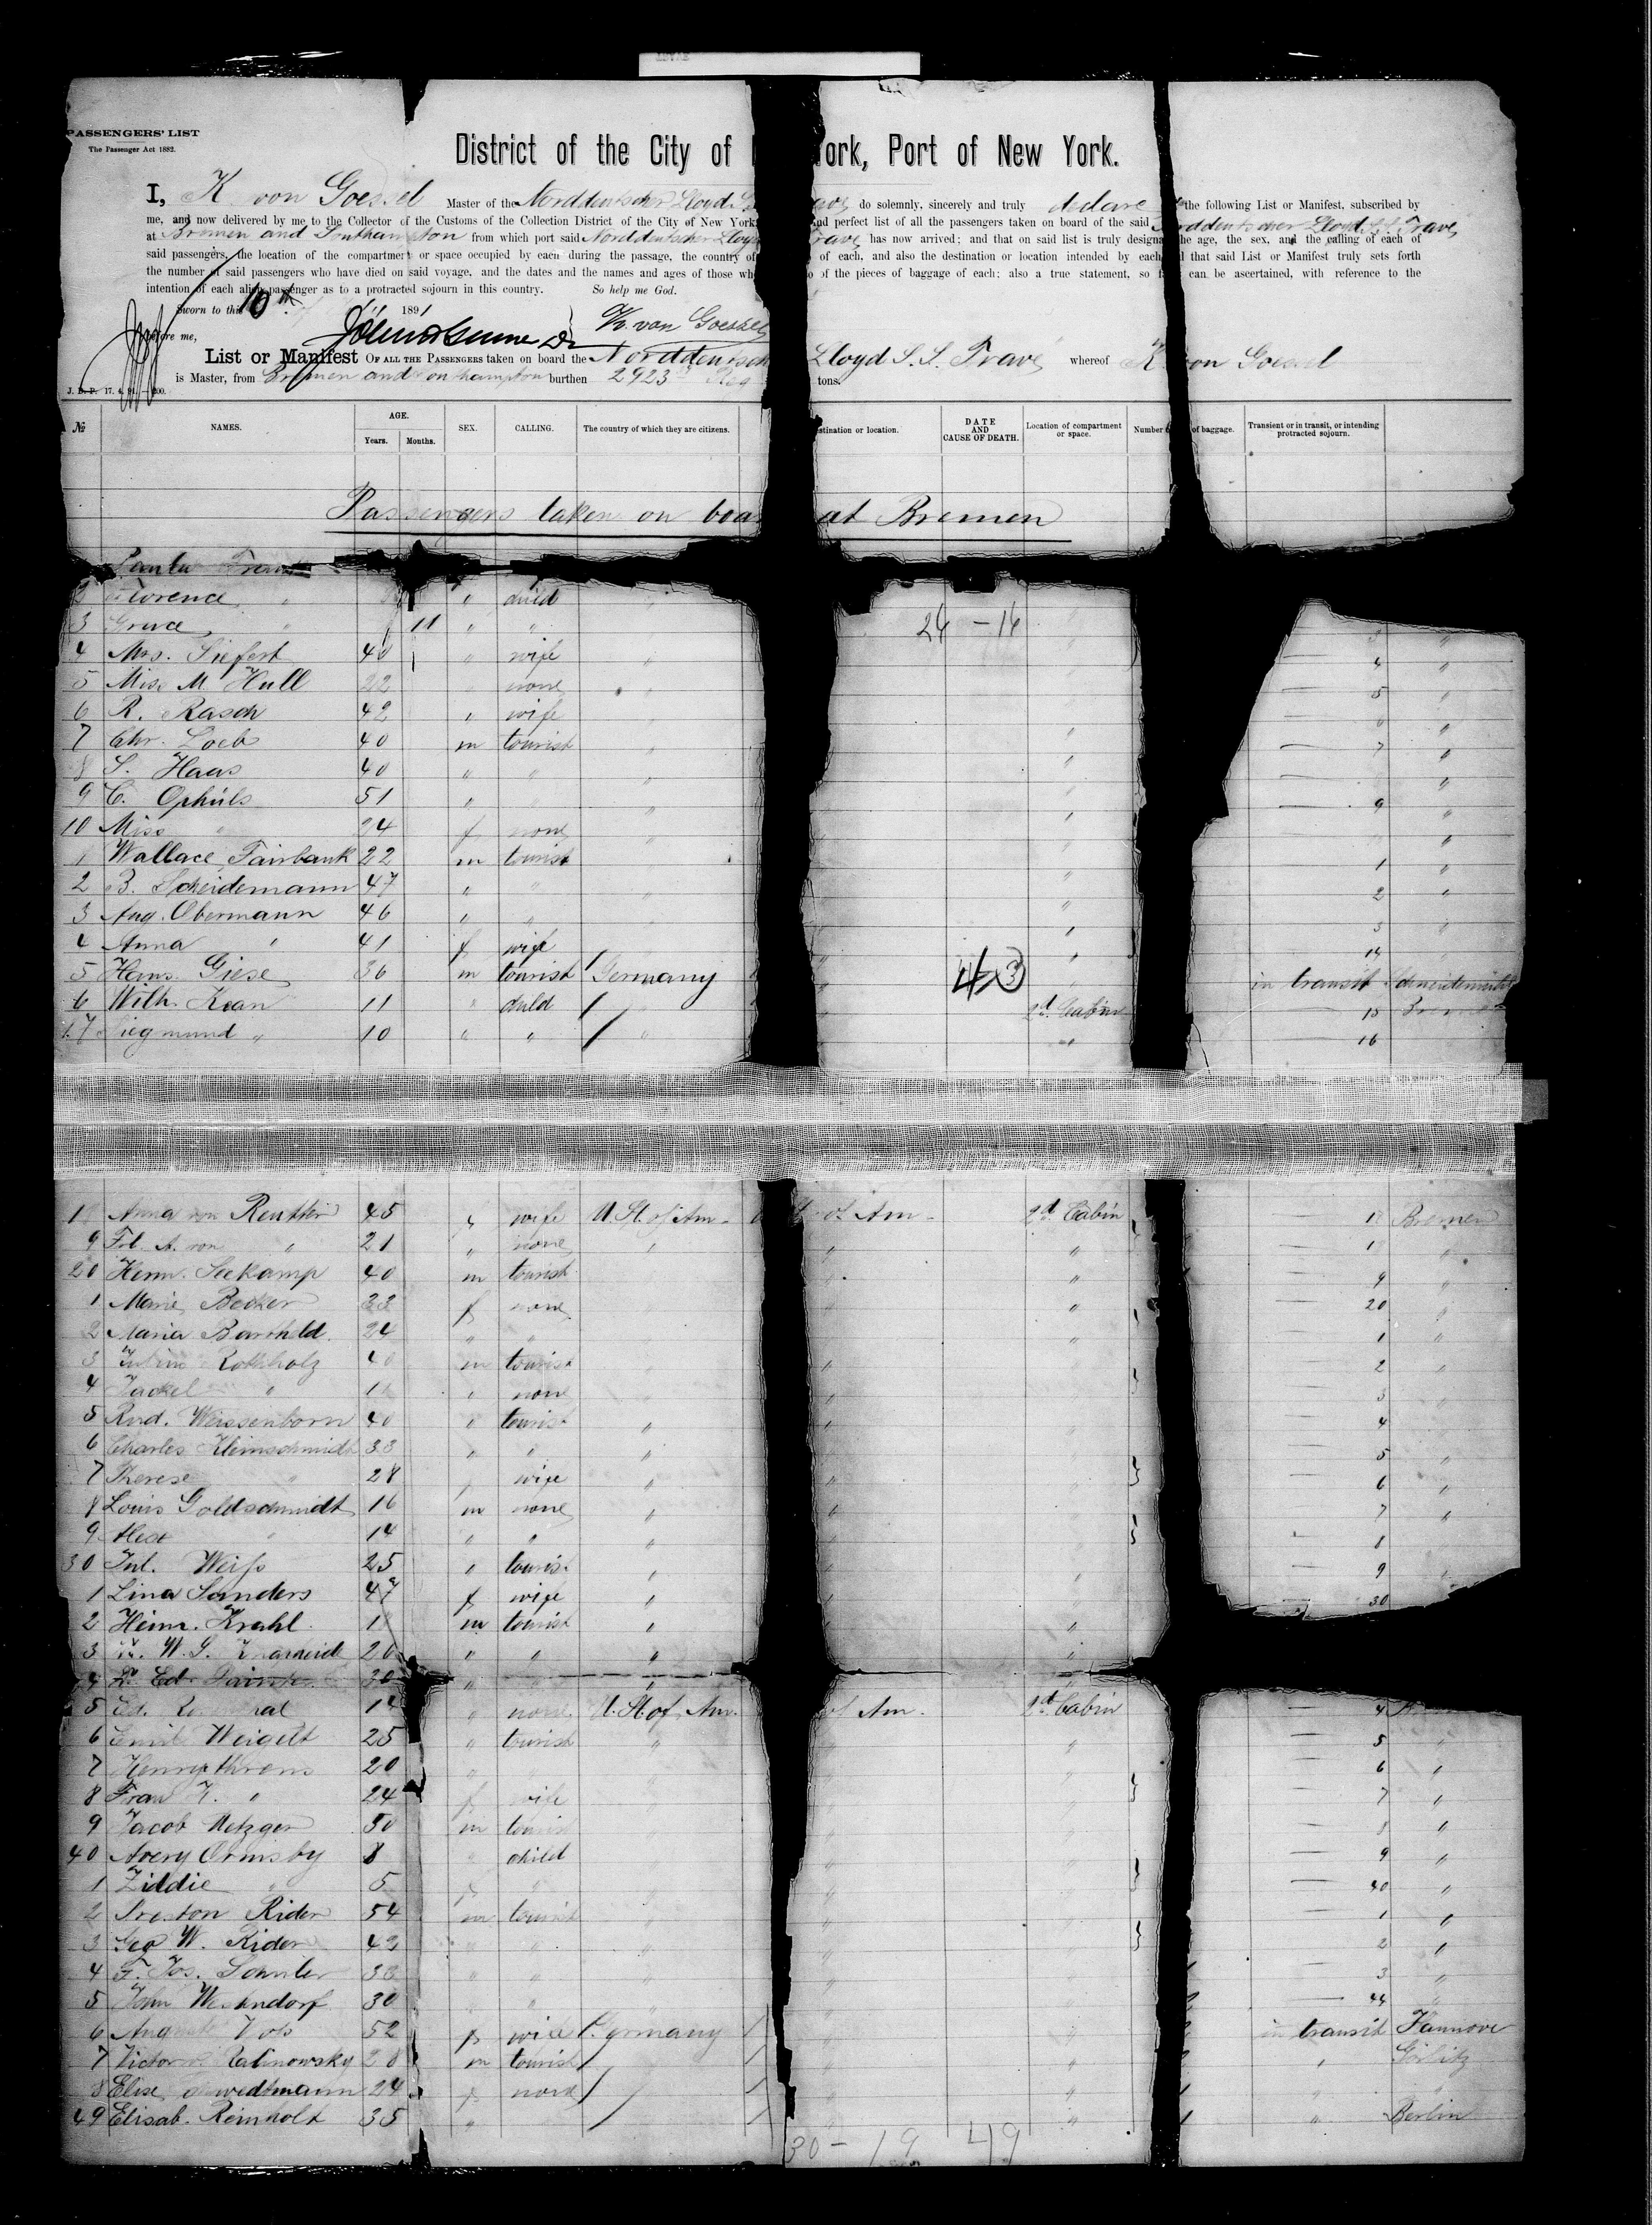 PASSENGERS' LIST
The Passenger Act 1882.
District of the City of York, Port of New York.
I, K. von Goessel Master of the Norddeutscher Lloyd S. do solemnly, sincerely and truly declare the following List or Manifest, subscribed by
me, and now delivered by me to the Collector of the Customs of the Collection District of the City of New York and perfect list of all the passengers taken on board of the said Norddeutscher Lloyd S.S. Trave,
at Bremen and Southampton from which port said Norddeutscher Lloyd Trave has now arrived; and that on said list is truly designa the age, the sex, and the calling of each of
said passengers, the location of the compartment or space occupied by each during the passage, the country of of each, and also the destination or location intended by each that said List or Manifest truly sets forth
the number of said passengers who have died on said voyage, and the dates and the names and ages of those wh of the pieces of baggage of each; also a true statement, so can be ascertained, with reference to the
intention of each alien passenger as to a protracted sojourn in this country. So help me God.
Sworn to this 16th 1891
before me, K. von Goessel
List or Manifest OF ALL THE PASSENGERS taken on board the Norddeutsch Lloyd S.S. Trave whereof K. von Goessel
is Master, from Bremen and Southampton burthen 2923 Reg tons.
J. B. P. 17. 4. 91. 200.
№ NAMES. AGE. Years. Months. SEX. CALLING. The country of which they are citizens. stination or location. DATE AND CAUSE OF DEATH. Location of compartment or space. Number of baggage. Transient or in transit, or intending protracted sojourn.
Passengers taken on boa at Bremen
2 Florence " " child
3 Grace " 11 " " 24 - 16 3 "
4 Mrs. Siefert 40 " wife " 4 "
5 Miss M Hull 22 none " 5 "
6 R. Rasch 42 " wife "
7 Chr. Loeb 40 m tourist " 7 "
8 S. Haas 40 " " " "
9 C. Ophüls 51 " " 9 "
10 Miss " 24 f none " "
1 Wallace Fairbank 22 m tourist 1 "
2 B. Scheidemann 47 " " " 2 "
3 Aug. Obermann 46 " " " 3 "
4 Anna " 41 f wife " 14 "
5 Herm. Giese 36 m tourist Germany 43 in transit Schneidemühl
6 Wilh. Kean 11 " child 2d Cabin 15 Bremen
17 Siegmund " 10 " " " " 16
1 Anna von Reutter 45 f wife U. St. of Am. of Am. 2d Cabin 1 Bremen
9 Frl. A. von " 21 " none " " 1 "
20 Herm. Seekamp 40 m tourist " 9 "
1 Marie Becker 22 f none " 20 "
2 Maria Barthold 24 " " " 1 "
3 Rothholz 40 m tourist " 2 "
4 Jackel " 11 " none 3 "
5 Rud. Weissenborn 40 " tourist " 4 "
6 Charles Kleinschmidt 33 " " " 5 "
7 Therese " 28 f wife " 6 "
8 Louis Goldschmidt 16 m none " 7 "
9 Alex " 14 " " " 8
30 Jul. Weiss 25 " tourist " 9 "
1 Lina Sanders 47 f wife " 30
2 Heinr. Krahl 1 m tourist " "
3 W. S. 26 " " " "
4 Ed. 30 " "
5 Ed. 14 " none U. St. of Am. of Am. 2d Cabin 4
6 Emil Weigelt 25 " tourist " " 5 "
7 Henry Ahrens 20 " 6 "
8 Frau H. " 24 f wife 7 "
9 Jacob Metzger 50 m tourist 8 "
40 Avery Ormsby 8 child 9 "
1 Ziddie " 5 f " 40 "
2 Preston Rider 54 m tourist " 1 "
3 Geo W. Rider 42 " " " 2 "
4 F. Jos. Schuler 38 " " " 3 "
5 John Westendorf 30 " " " 44 "
6 Auguste Vols 52 f wife Germany " in transit Hannover
7 Victor Kalinowsky 28 m tourist " " Görlitz
8 Elise 24 f none " " "
49 Elisab. Reinholt 35 " " " Berlin
30 - 19 49